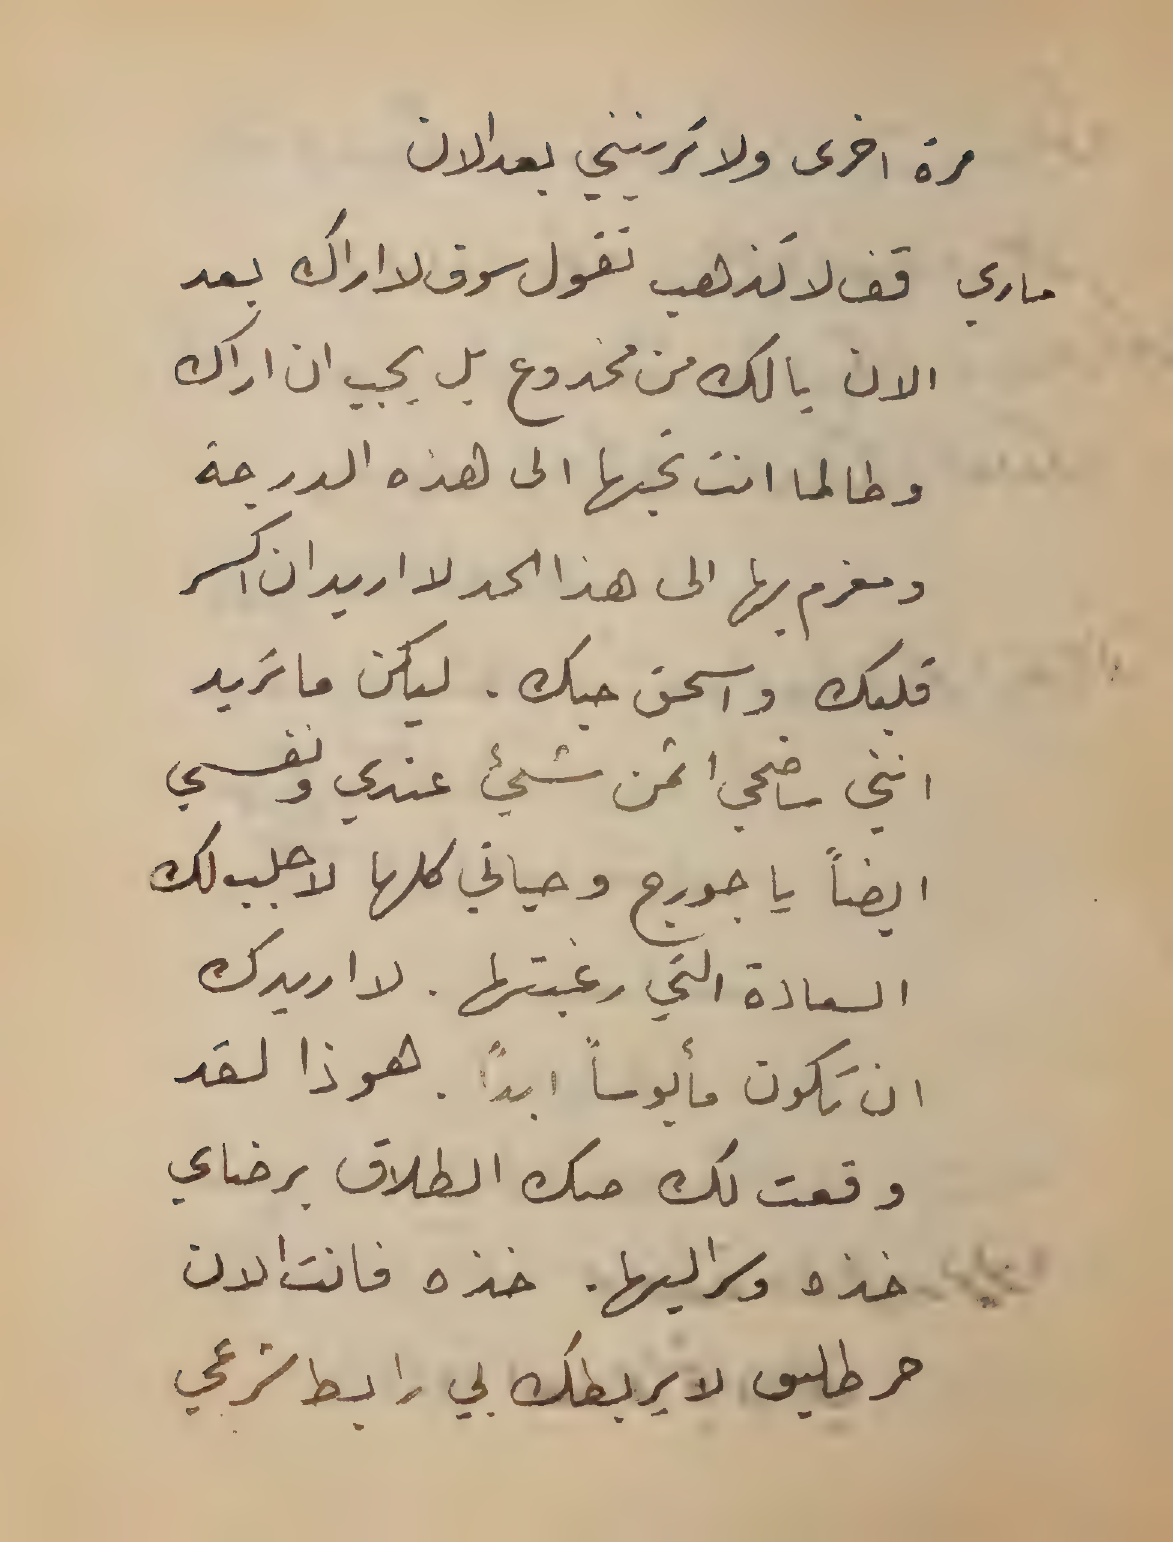 مرة اخرى ولا ترينني بعد الان
ماري قف لا تذهب تقول سوف لا اراك بعد
الان يا لك من مخدوع بل يجب ان اراك
وطالما انت تحبها الى هذه الدرجة
ومغرم بها الى هذا الحد لا اريد ان اكسر
قلبك واسحق حبك . ليكن ما تريد
انني ساضحي اثمن شيئ عندي ونفسي
ايضاً يا جورج وحياتي كلها لاجلب لك
السعادة التي رغبتها . لا اريدك
ان تكون مأيوساً ابداً . هوذا لقد
وقعت لك صك الطلاق برضاي
خذه وسر اليها . خذه فانت الان
حر طليق لا يربطك بي رابط شرعي